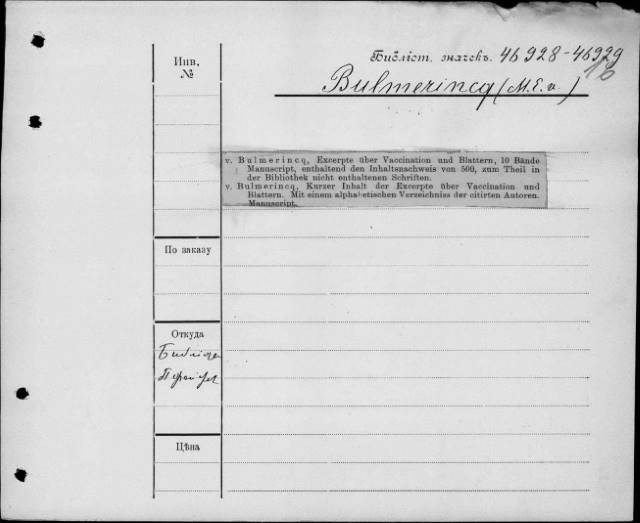 Библіот. значекъ. 46928-46929
16
Инв.
№
Bulmerincq (M. E. v.)
v. Bulmerincq, Excerpte über Vaccination und Blattern, 10 Bände
Manuscript, enthaltend den Inhaltsnachweis von 500, zum Theil in
der Bibliothek nicht enthaltenen Schriften.
v. Bulmerincq, Kurzer Inhalt der Excerpte über Vaccination und
Blattern. Mit einem alphabetischen Verzeichniss der citirten Autoren.
Manuscript.
По заказу
Откуда
Цѣна